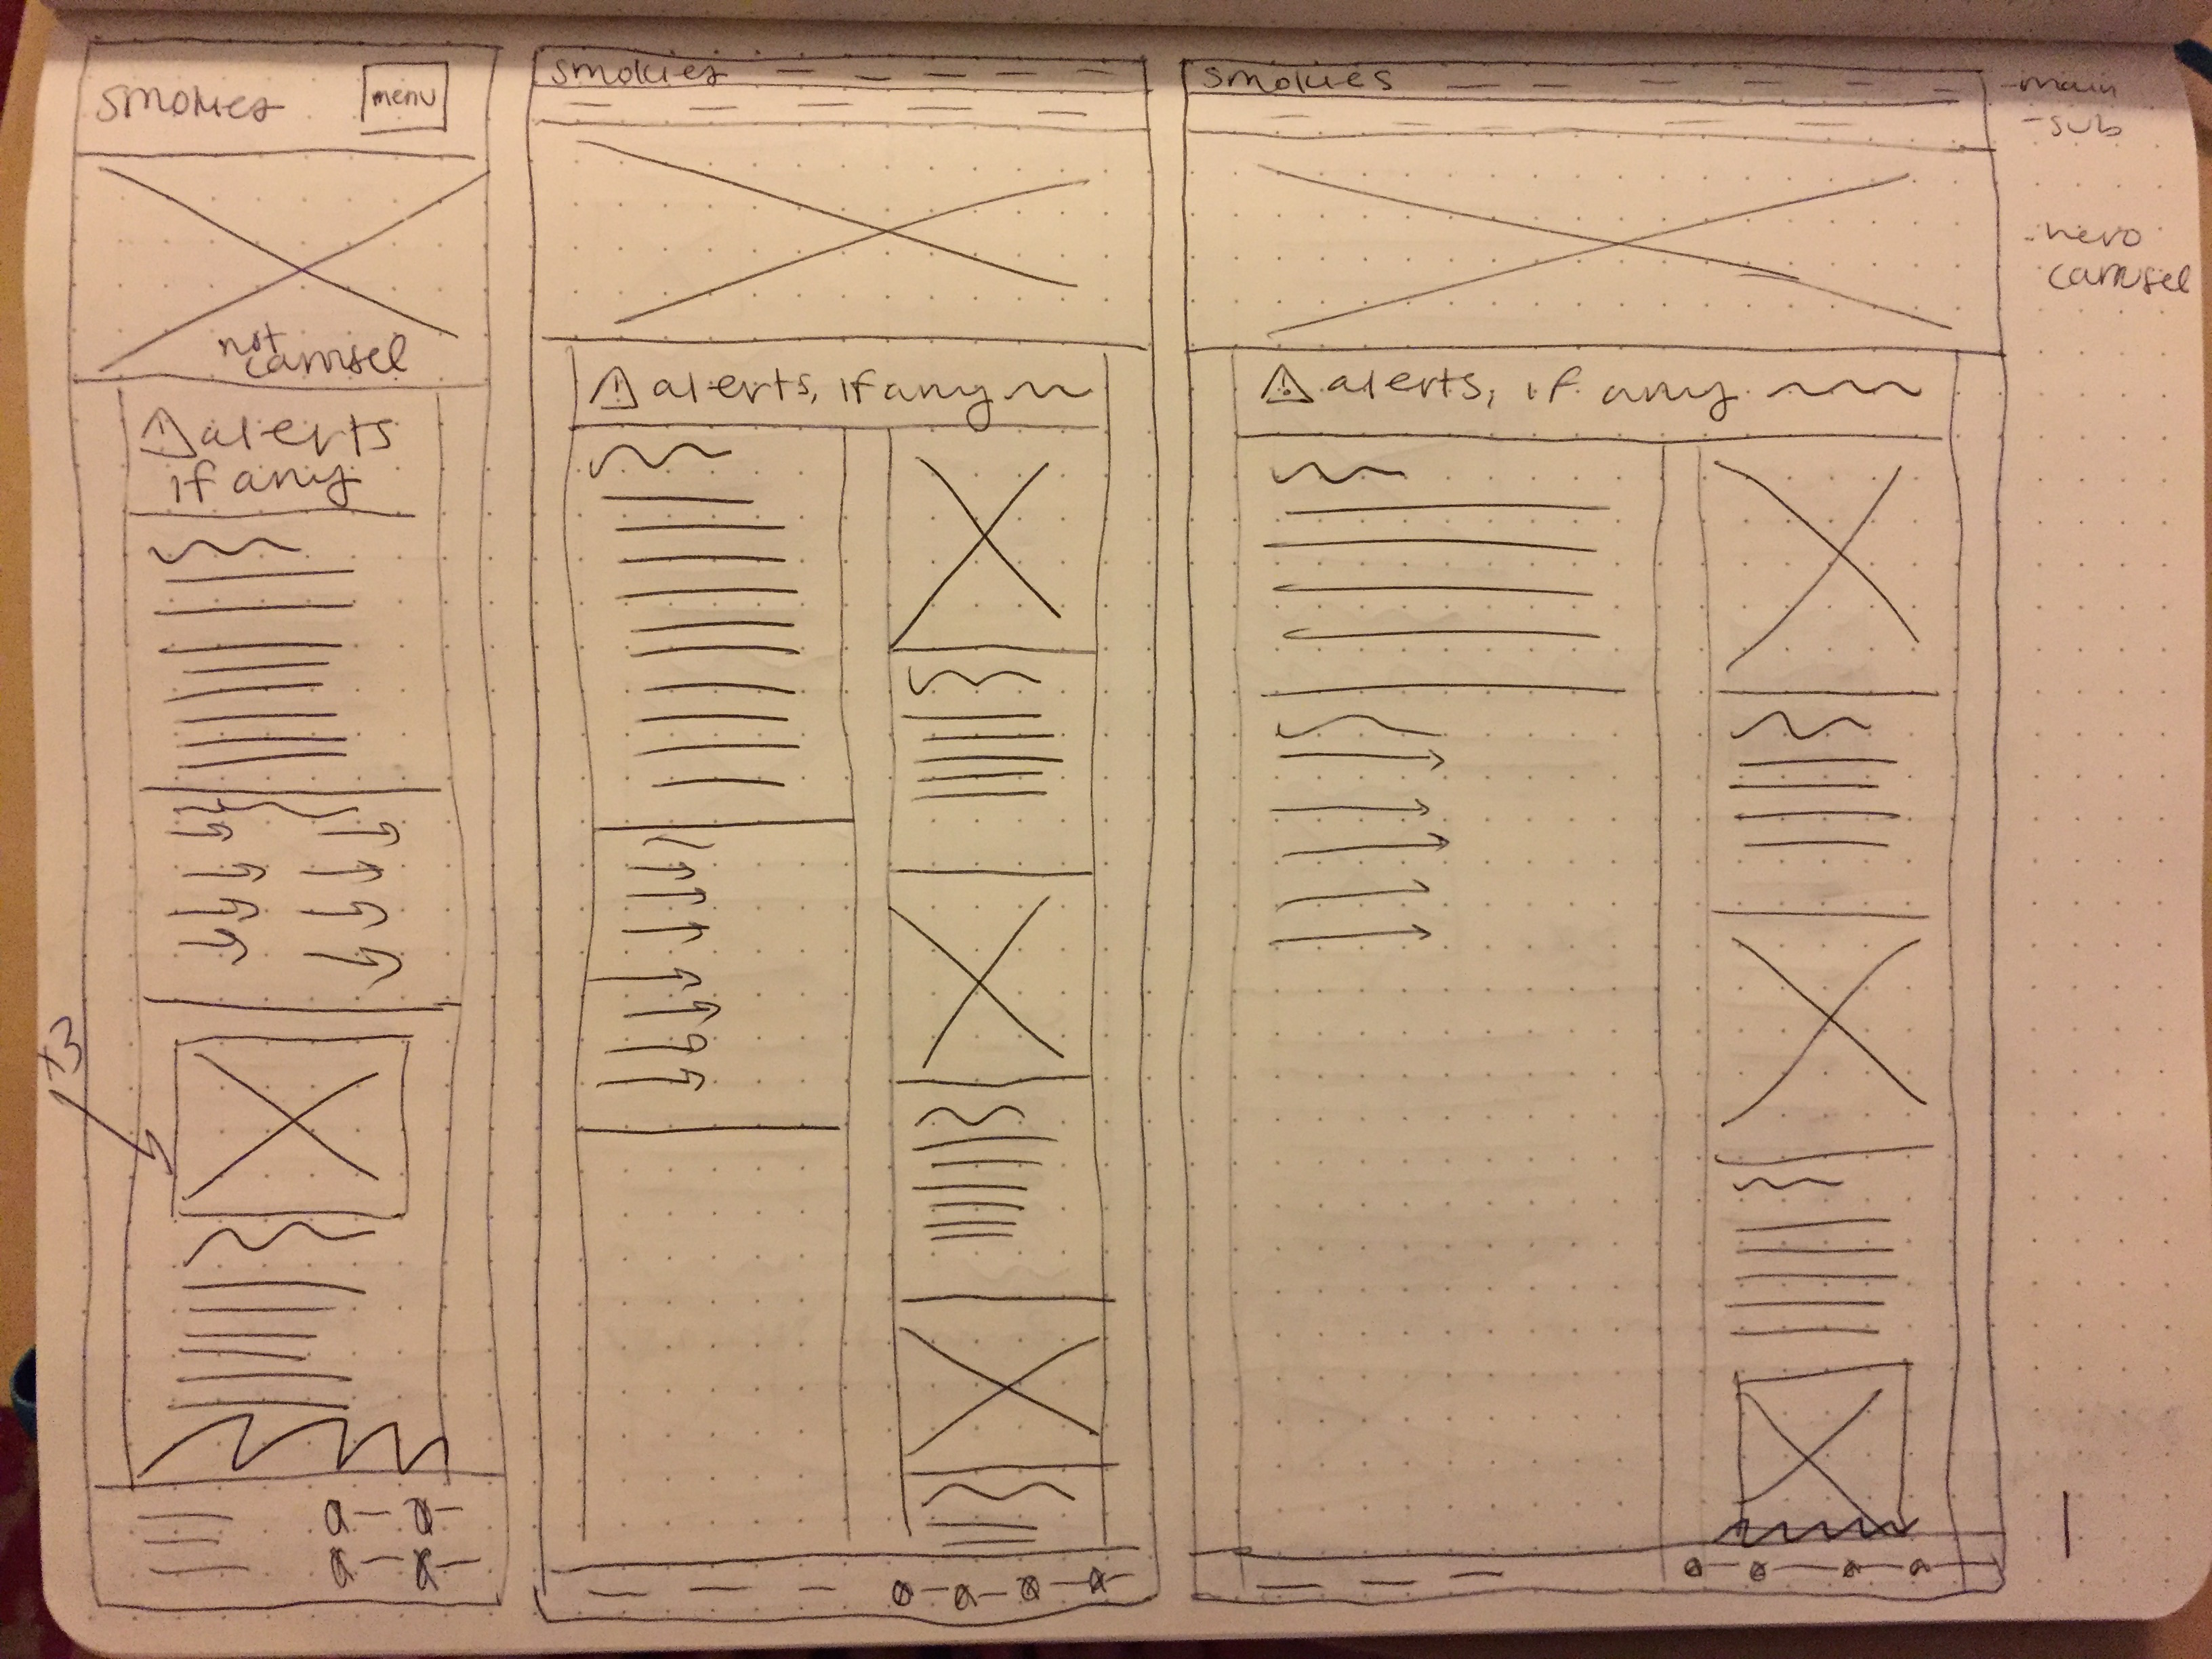 smokies
menu
not
carousel
alerts
if any
x3
smokies
alerts, if any
smokies
alerts, if any
-main
-sub
-hero
carousel